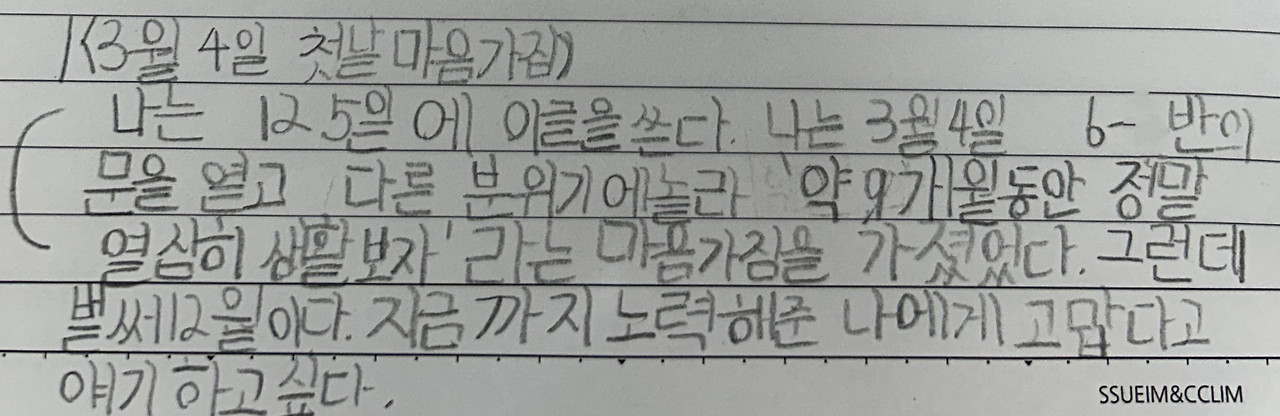 1〈3월 4일 첫날 마음가짐〉
나는 12 5일에 이글을 쓴다. 나는 3월4일 6- 반의
문을 열고 다른 분위기에놀라 '약 9개월동안 정말
열심히 생활보자' 라는 마음가짐을 가졌었다. 그런데
벌써12월이다. 지금 까지 노력해준 나에게 고맙다고
얘기 하고싶다.
SSUEIM&CCLIM